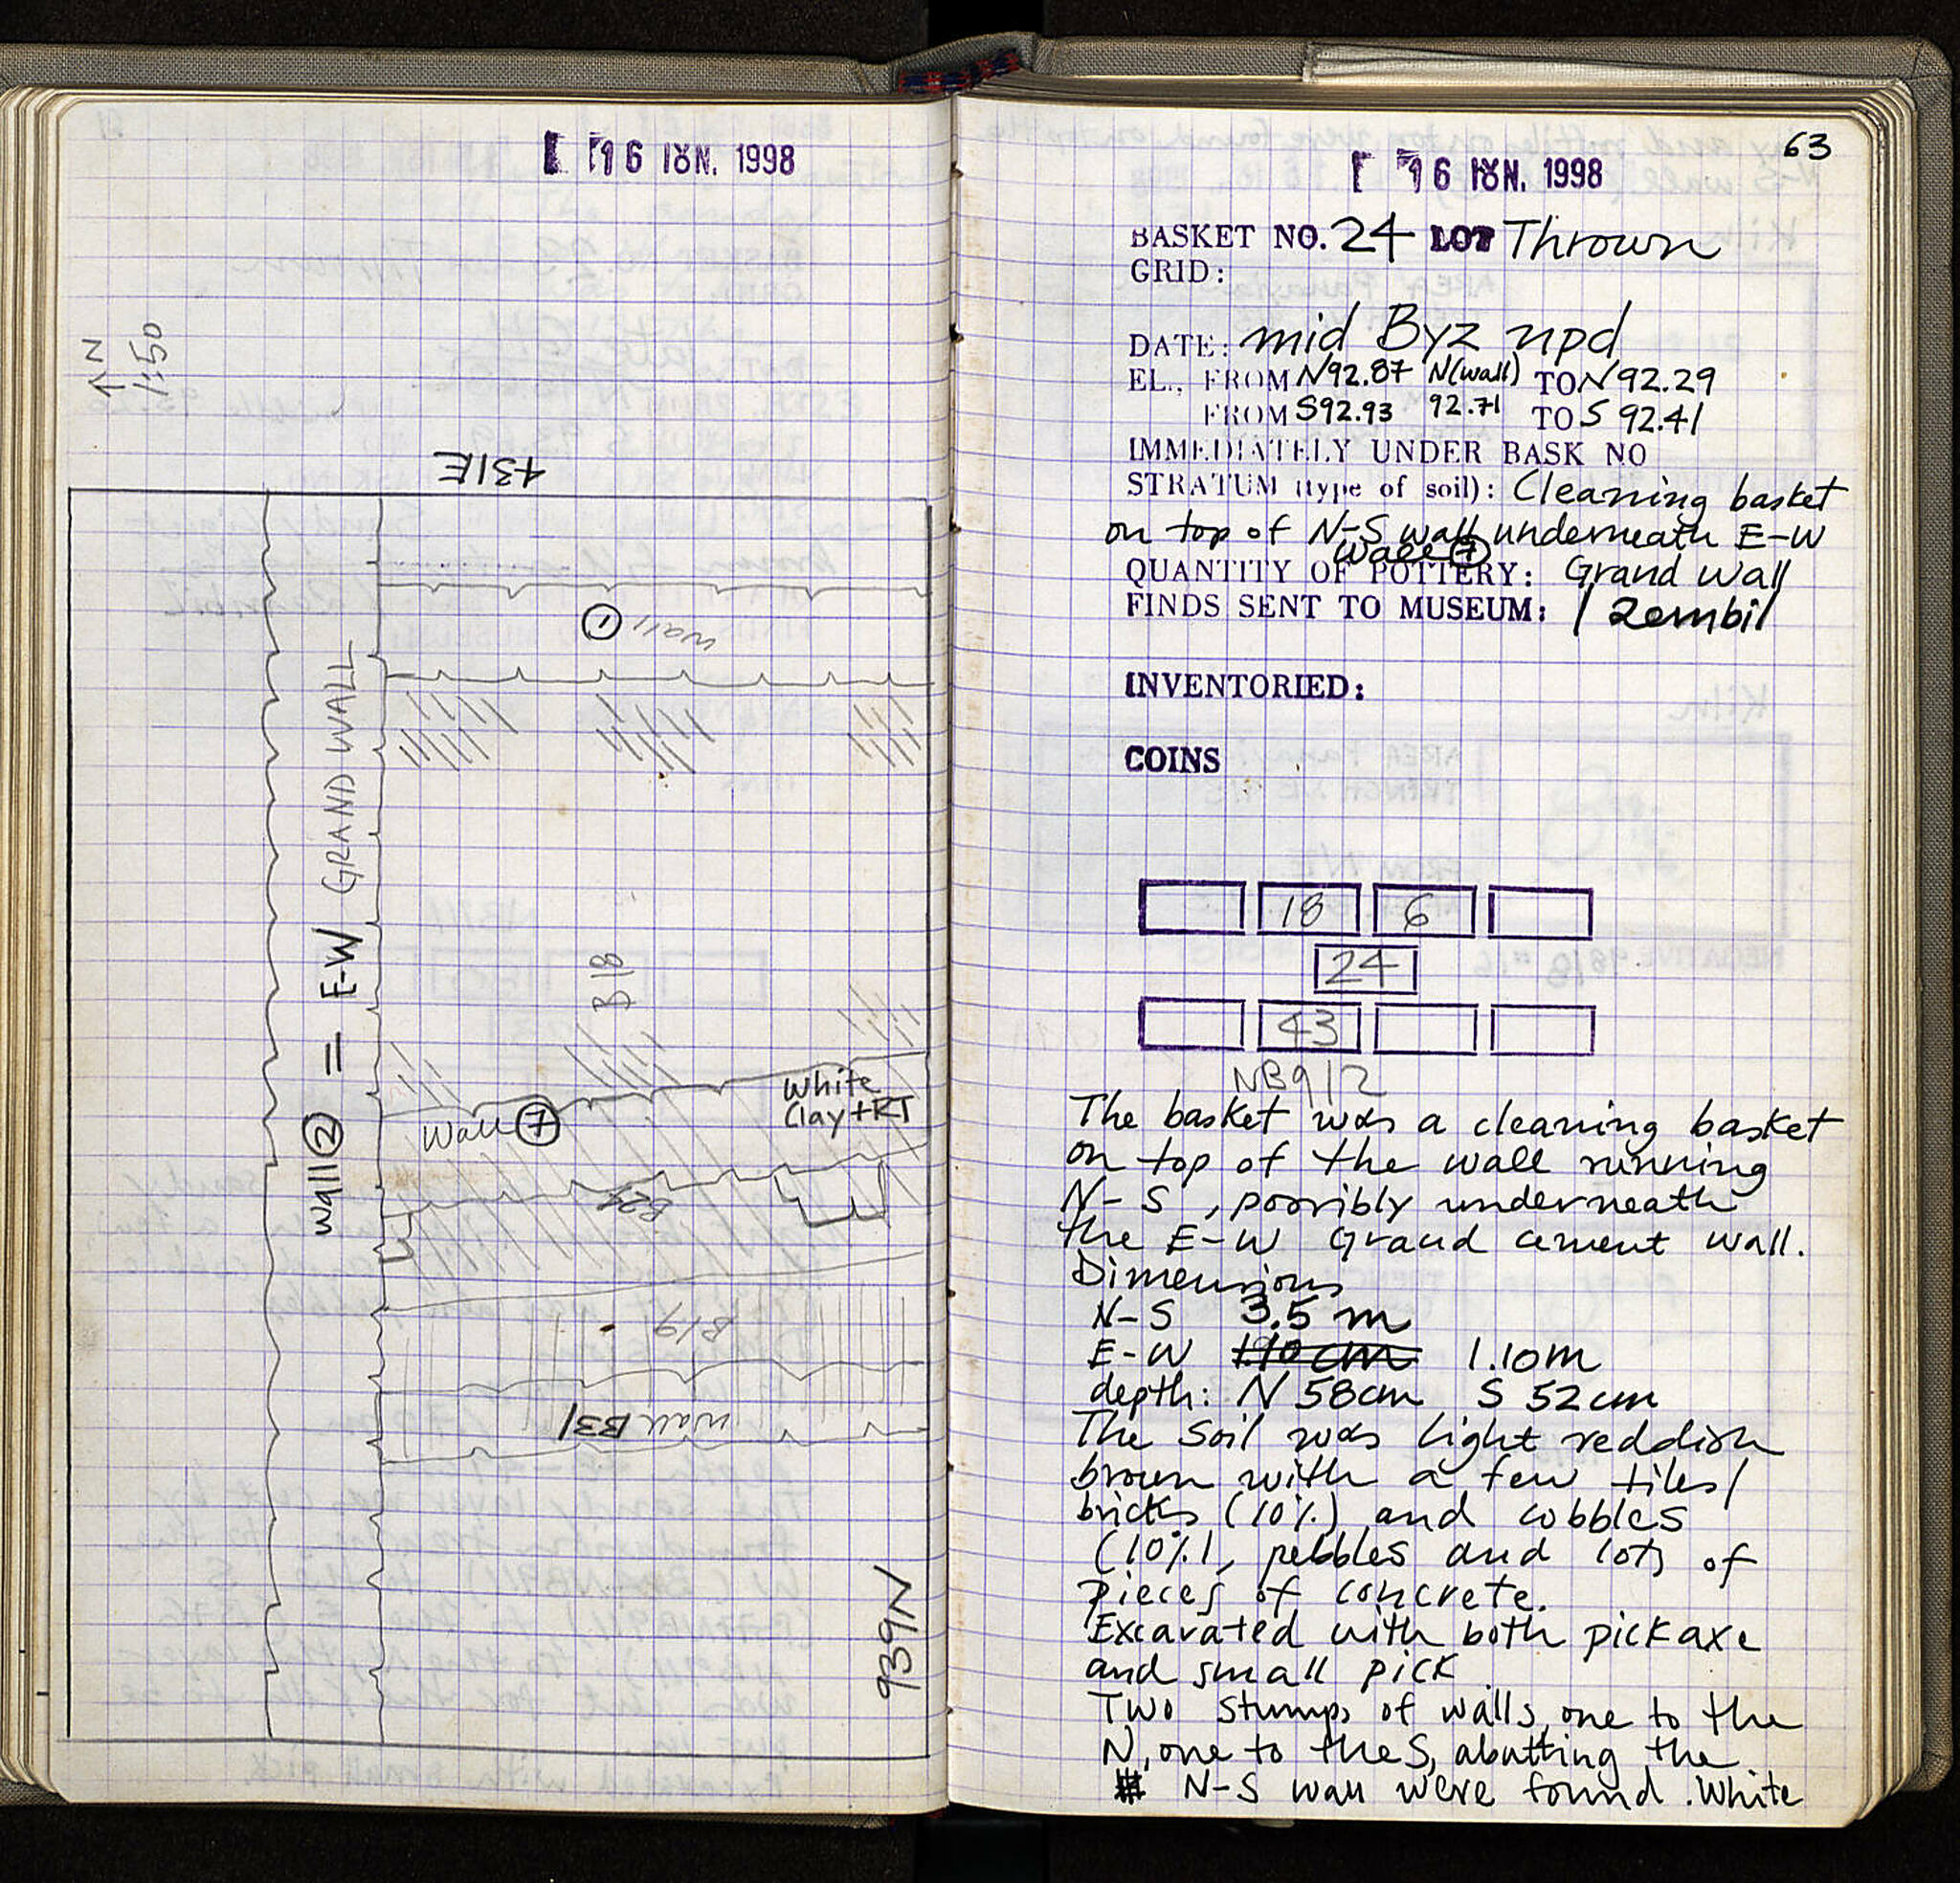 16 ΙΟΥΝ. 1998
N
1:50
431E
① wall
wall ② = E-W GRAND WALL
B18
White
Clay+RT
Wall ⑦
B24
B19
wall B31
939N
63
16 ΙΟΥΝ. 1998
BASKET NO. 24 LOT Thrown
GRID:
DATE: mid Byz npd
EL., FROM N92.87 N(wall) TO N 92.29
FROM S92.93 92.71 TO S 92.41
IMMEDIATELY UNDER BASK NO
STRATUM (type of soil): Cleaning basket
on top of N-S wall underneath E-W
wall ⑦
QUANTITY OF POTTERY: Grand wall
FINDS SENT TO MUSEUM: 1 zembil
INVENTORIED:
COINS
18 6
24
43
NB912
The basket was a cleaning basket
on top of the wall running
N-S, possibly underneath
the E-W Grand cement wall.
Dimensions
N-S 3.5 m
E-W 1.90 cm 1.10m
depth: N 58cm S 52cm
The soil was light reddish
brown with a few tiles/
bricks (10%) and cobbles
(10%), pebbles and lots of
pieces of concrete.
Excavated with both pickaxe
and small pick
Two stumps of walls, one to the
N, one to the S, abutting the
N-S wall were found. White